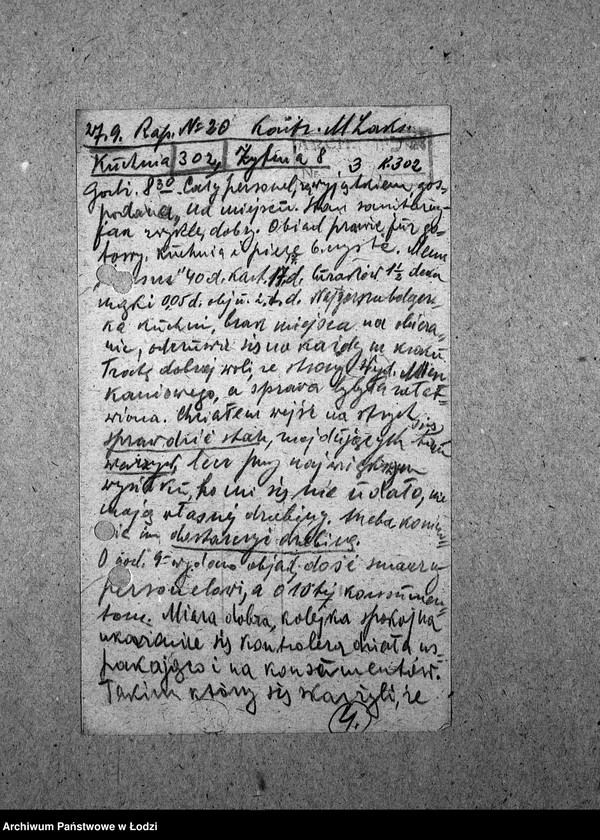 27.9. Rap. № 20 Kontr. M Laks.
Kuchnia 302, Żytnia 8 3 k.302
Godz. 8 30 Cały personel, z wyjątkiem gos-
podarza, na miejscu. Stan sanitarny
jak zwykle, dobry. Obiad prawie już go-
towy. Kuchnia i piece b. czyste. Menu
40 d. kart. 17 d. buraków 1½ deka
mąki 0,05 d.
ka kuchni, brak miejsca na obiera-
nie, odczuwa się na każdym kroku
Trochę dobrej woli, ze strony Wyd. Miesz
kaniowego, a sprawa byłaby załat-
wiona. Chciałem wejść na strych
sprawdzić stan, znajdujących się tam
warzyw, lecz przy największym
wysiłku, to mi się nie udało, nie
mają własnej drabiny. Trzeba koniecz-
nie im dostarczyć drabinę.
O god. 9- wydano objad dość smaczny
personelowi, a o 10tej konsumen-
tom. Miara dobra, kolejka spokojna
ukazanie się kontrolera działa us-
pakająco i na konsumentów.
Takim którzy się skarżyli, że
Archiwum Państwowe w Łodzi